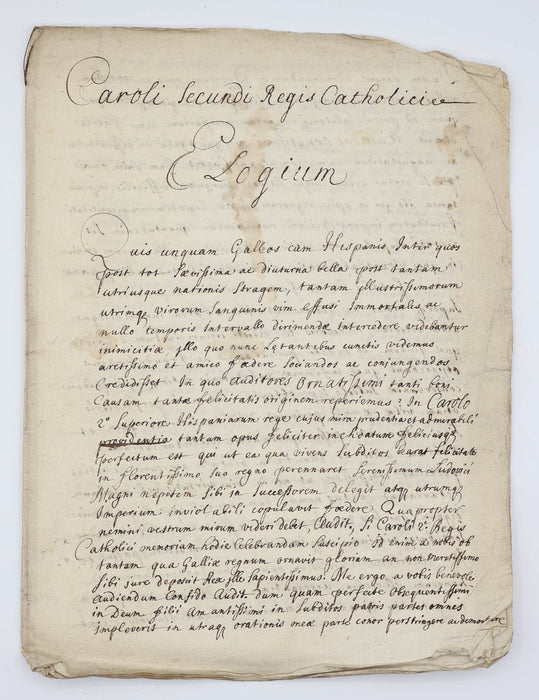 Caroli Secundi Regis Catholici
Elogium
Quis unquam Gallos cum Hispanis, Inter quos
post tot Sævissima ac diuturna bella post tantam
utriusque nationis Stragem, tantam jllustrissimorum
utrimq virorum Sanguinis vim effusi Immortales ac
nullo temporis Intervallo dirimendæ Intercedere videbantur
inimicitiæ jllo quo nunc Lętantibus cunctis videmus
arctissimo et amico fœdere Sociandos ac conjungendos
Credidisset In quo auditores Ornatissimi tanti boni
Causam tantæ felicitatis originem reperiemus? In Carolo
2º Superiore Hispaniarum rege cujus mira prudentia et admirabili
providentia tantum opus feliciter inchoatum feliciusq
perfectum est qui ut ea qua vivens Subditos felicitate
in florentissimo Suo regno perennaret Serenissimum Ludovici
Magni nepotem Sibi in Successorem delegit atq utrumq
Imperium inviolabili copulavit fœdere Quapropter
nemini vestrum mirum videri debet Audit, Si Caroli 2i Regis
Catholici memoriam hodie Celebrandam Suscipio Id enim a nobis ob
tantam qua Galliæ regnum ornavit gloriam an non meritissimo
Sibi jure deposcit Rex jlle Sapientissimus. Me ergo a vobis benevole
audiendum Confido Audit. dum quam perfecte Obsequentissimi
in Deum filii Amantissimi in Subditos patris partes omnes
impleverit in utraq orationis meæ parte conor perstringere ac demonstrare